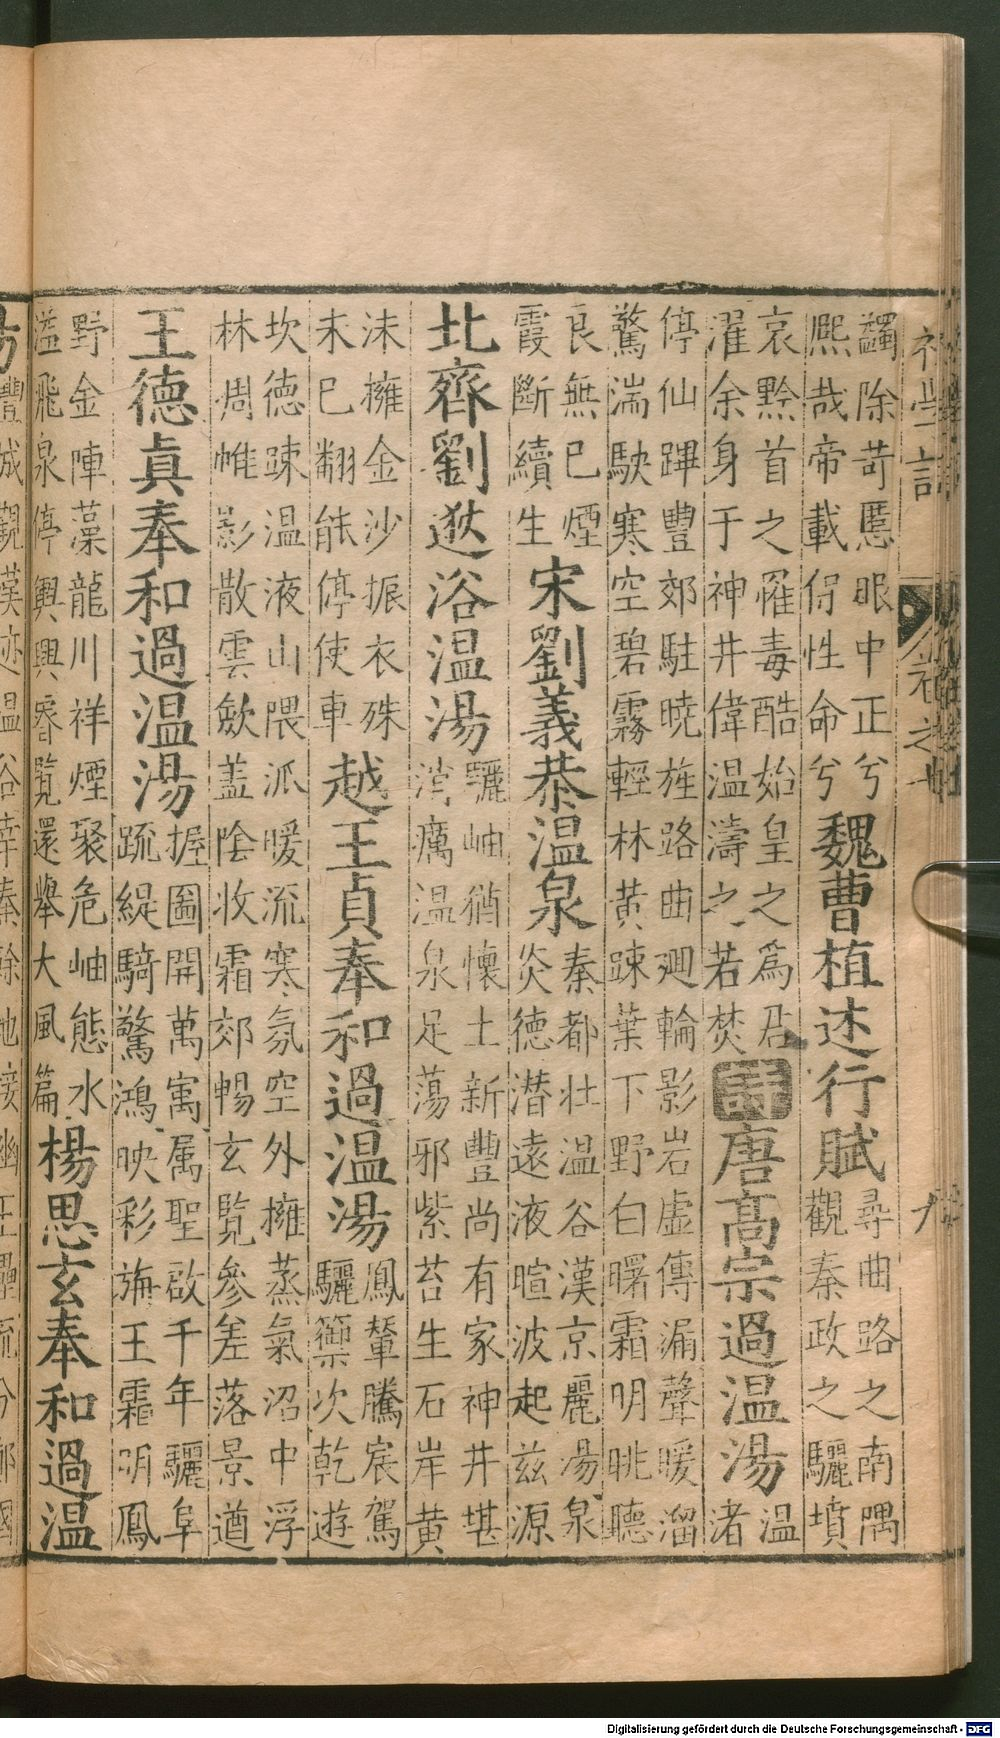 蠲除苛慝眼中正兮
熈哉帝載保性命兮
魏曹植述行賦
尋曲路之南隅
觀秦政之驪墳
哀黔首之罹毒酷始皇之爲君
濯余身于神井偉温濤之若焚
詩
唐高宗過温湯
温
渚
停仙蹕豐郊駐曉旌路曲廻輪影岩虚傳漏聲暖溜
驚湍駛寒空碧霧輕林黄踈葉下野白曙霜明眺聽
良無已煙
霞斷續生
宋劉義恭温泉
秦都壮温谷漢京麗湯泉
炎德潜遠液暄波起兹源
北齊劉逖浴温湯
驪岫猶懷土新豐尚有家神井堪
消癘温泉足蕩邪紫苔生石岸黄
沫擁金沙振衣殊
未已翻能停使車
越王貞奉和過温湯
鳳輦騰宸駕
驪籞次乾遊
坎德踈温液山隈派暖流寒氛空外擁蒸氣沼中浮
林凋帷影散雲歛蓋陰收霜郊暢玄覧參差落景遒
王德眞奉和過温湯
握圖開萬寓属聖啟千年驪阜
疏緹騎驚鴻映彩旃玉霜明鳳
野金陣藻龍川祥煙聚危岫態水
溢飛泉停輿興睿覧還舉大風篇
楊思玄奉和過温